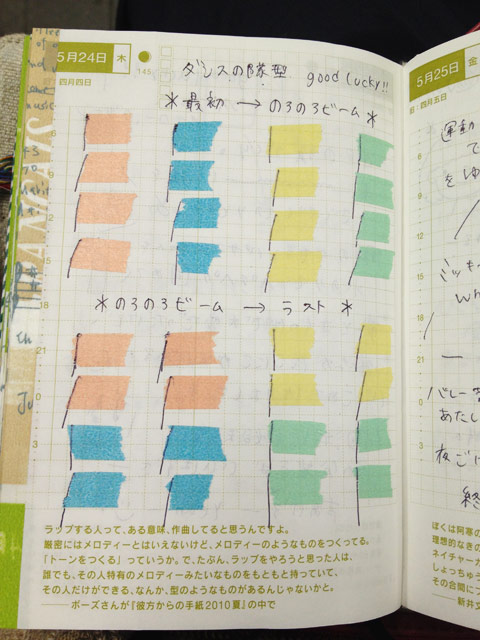 5月24日 木
145
旧：四月四日
ダンスの隊型 good lucky!!
＊最初 → のろのろビーム＊
6
9
12
15
＊のろのろビーム → ラスト＊
18
21
0
3
ラップする人って、ある意味、作曲してると思うんですよ。
厳密にはメロディーとはいえないけど、メロディーのようなものをつくってる。
「トーンをつくる」っていうか。で、たぶん、ラップをやろうと思った人は、
誰でも、その人特有のメロディーみたいなものをもともと持っていて、
その人だけができる、なんか、型のようなものがあるんじゃないかと。
――ボーズさんが『彼方からの手紙2010夏』の中で
5月25日 金
旧：四月五日
運動
て
をゆ
ミッキ
Wh
バレー
あたし
終
ぼくは阿寒の
理想的なきの
ネイチャーガ
しょっちゅう
その合間につ
――新井文